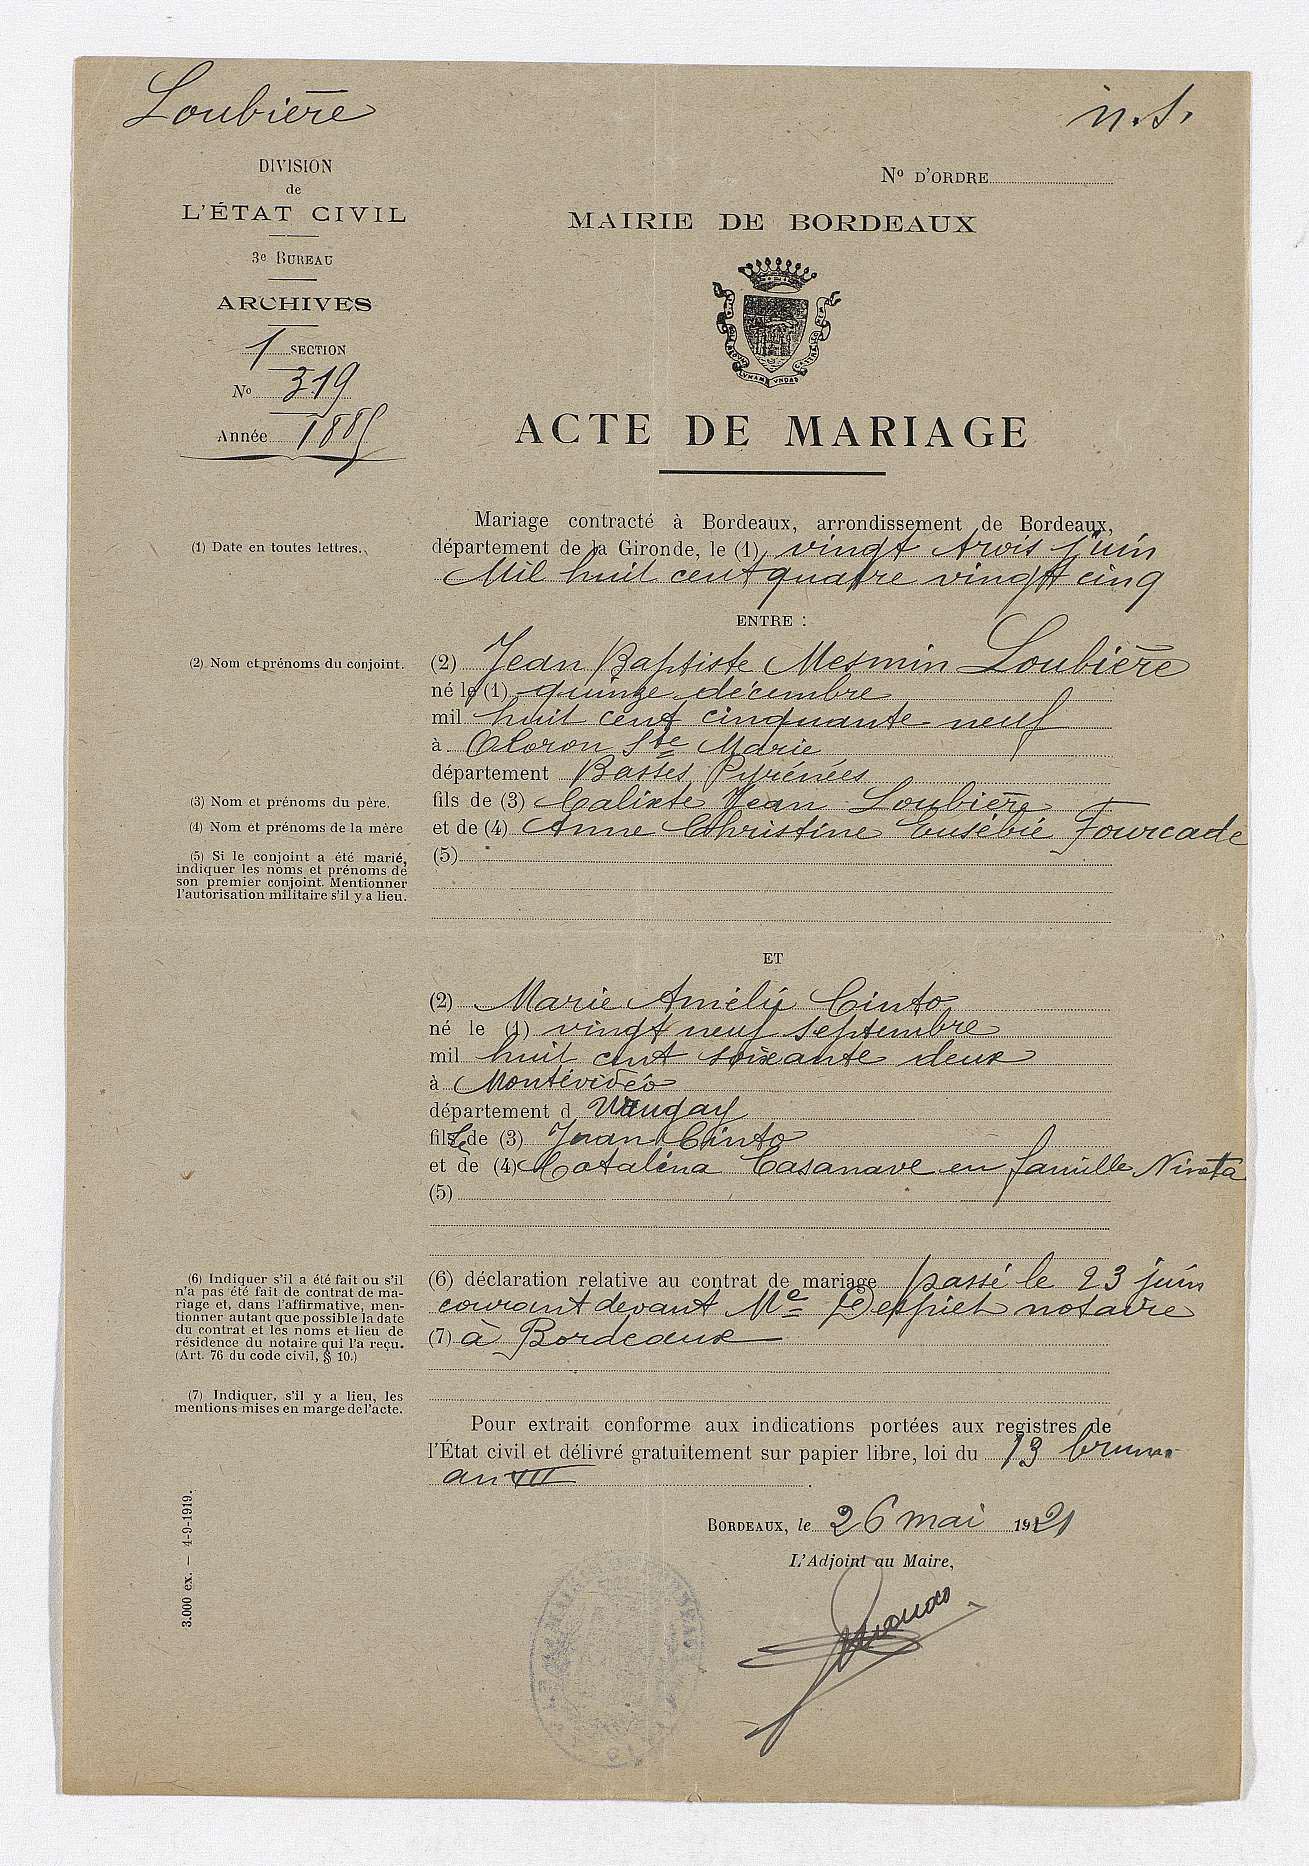 Loubière
n.s.
DIVISION
de
L'ÉTAT CIVIL
3e BUREAU
ARCHIVES
1 SECTION
No 319
Année 1885
No D'ORDRE
MAIRIE DE BORDEAUX
ACTE DE MARIAGE
Mariage contracté à Bordeaux, arrondissement de Bordeaux,
(1) Date en toutes lettres.
département de la Gironde, le (1) vingt trois juin
Mil huit cent quatre vingt cinq
ENTRE :
(2) Nom et prénoms du conjoint.
(2) Jean Baptiste Mesmin Loubière
né le (1) quinze décembre
mil huit cent cinquante neuf
à Oloron Ste Marie
département Basses Pyrénées
(3) Nom et prénoms du père.
fils de (3) Calixte Jean Loubière
(4) Nom et prénoms de la mère
et de (4) Anne Christine Eusébie Fourcade
(5) Si le conjoint a été marié,
indiquer les noms et prénoms de
son premier conjoint. Mentionner
l'autorisation militaire s'il y a lieu.
(5)
ET
(2) Marie Amélie Cinto
né le (1) vingt neuf septembre
mil huit cent soixante deux
à Montévidéo
département d Uruguay
fille de (3) Juan Cinto
et de (4) Cataléna Casanave en famille
(5)
(6) Indiquer s'il a été fait ou s'il
n'a pas été fait de contrat de ma-
riage et, dans l'affirmative, men-
tionner autant que possible la date
du contrat et les noms et lieu de
résidence du notaire qui l'a reçu.
(Art. 76 du code civil, § 10.)
(6) déclaration relative au contrat de mariage passé le 23 juin
courant devant Me Despiet notaire
(7) à Bordeaux
(7) Indiquer, s'il y a lieu, les
mentions mises en marge de l'acte.
Pour extrait conforme aux indications portées aux registres de
l'État civil et délivré gratuitement sur papier libre, loi du 13 brum
an VII
3.000 ex. — 4-9-1919.
BORDEAUX, le 26 mai 1921
L'Adjoint au Maire,